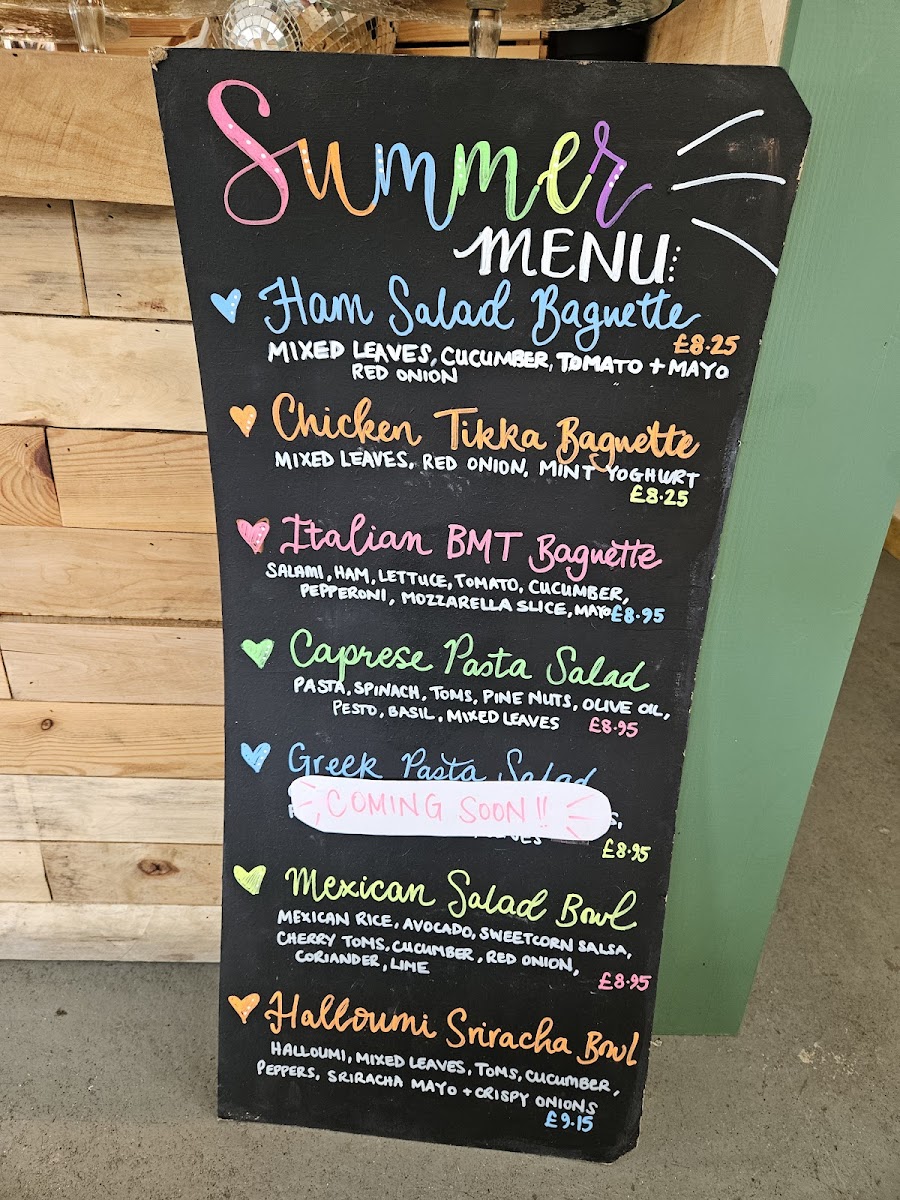 Summer
MENU:
Ham Salad Baguette
£8.25
MIXED LEAVES, CUCUMBER, TOMATO + MAYO
RED ONION
Chicken Tikka Baguette
MIXED LEAVES, RED ONION, MINT YOGHURT
£8.25
Italian BMT Baguette
SALAMI, HAM, LETTUCE, TOMATO, CUCUMBER,
PEPPERONI, MOZZARELLA SLICE, MAYO £8.95
Caprese Pasta Salad
PASTA, SPINACH, TOMS, PINE NUTS, OLIVE OIL,
PESTO, BASIL, MIXED LEAVES £8.95
Greek Pasta Salad
COMING SOON!!
£8.95
Mexican Salad Bowl
MEXICAN RICE, AVOCADO, SWEETCORN SALSA,
CHERRY TOMS, CUCUMBER, RED ONION,
CORIANDER, LIME £8.95
Halloumi Sriracha Bowl
HALLOUMI, MIXED LEAVES, TOMS, CUCUMBER,
PEPPERS, SRIRACHA MAYO + CRISPY ONIONS
£9.15